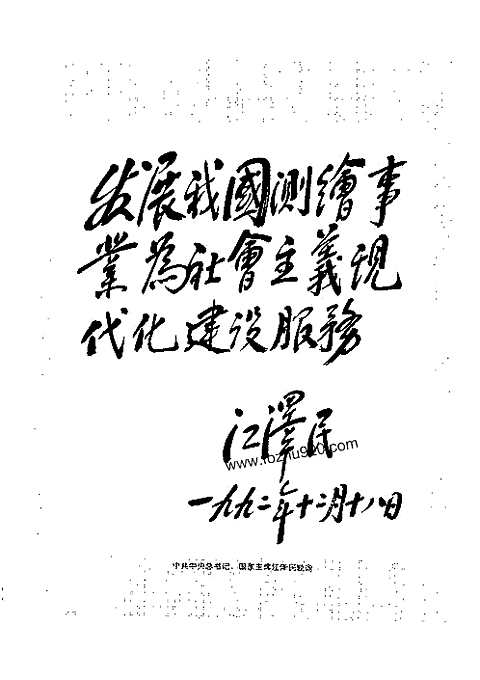 发展我國測繪事
業為社會主義現
代化建设服務
江澤民
www.tozhu920.com
一九九二年十二月十八日
中共中央总书记、国家主席江泽民题词